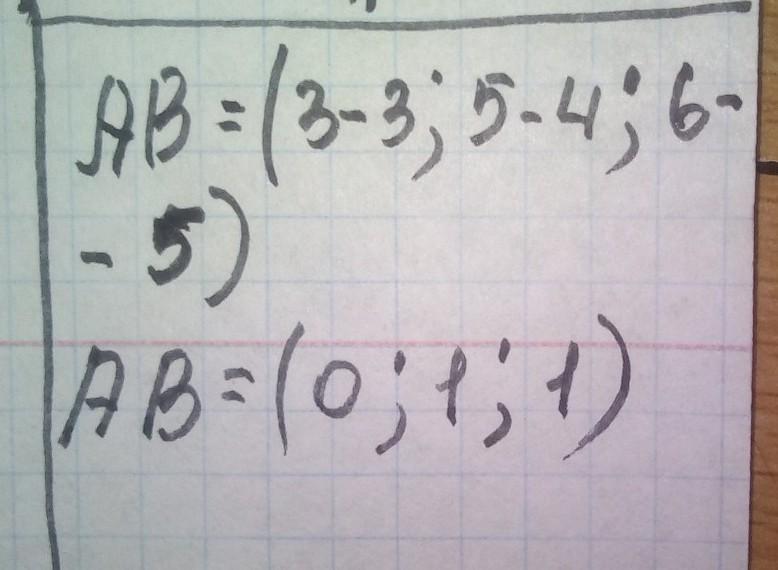 AB=(3-3; 5-4; 6-
- 5)
AB=(0; 1; 1)